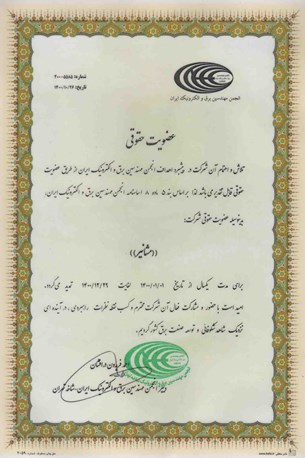 شماره: ۴۰۰-۵۵۸۵
تاریخ: ۱۴۰۰/۱۰/۲۶
انجمن مهندسین برق و الکترونیک ایران
عضویت حقوقی
تلاش و اهتمام آن شرکت در پیشبرد اهداف انجمن مهندسین برق و الکترونیک ایران از طریق عضویت
حقوقی قابل تقدیر می باشد لذا بر اساس بند ۵ ماده ۸ اساسنامه انجمن مهندسین برق و الکترونیک ایران،
بدینوسیله عضویت حقوقی شرکت:
((مشانیر))
برای مدت یکسال از تاریخ ۱۴۰۰/۰۱/۰۱ لغایت ۱۴۰۰/۱۲/۲۹ تمدید می گردد.
امید است با حضور و مشارکت فعال آن شرکت محترم و کسب نقطه نظرات راهبردی، در آینده ای
نزدیک شاهد شکوفایی و توسعه صنعت برق کشور گردیم.
دبیر انجمن مهندسین برق و الکترونیک ایران-شاخه تهران